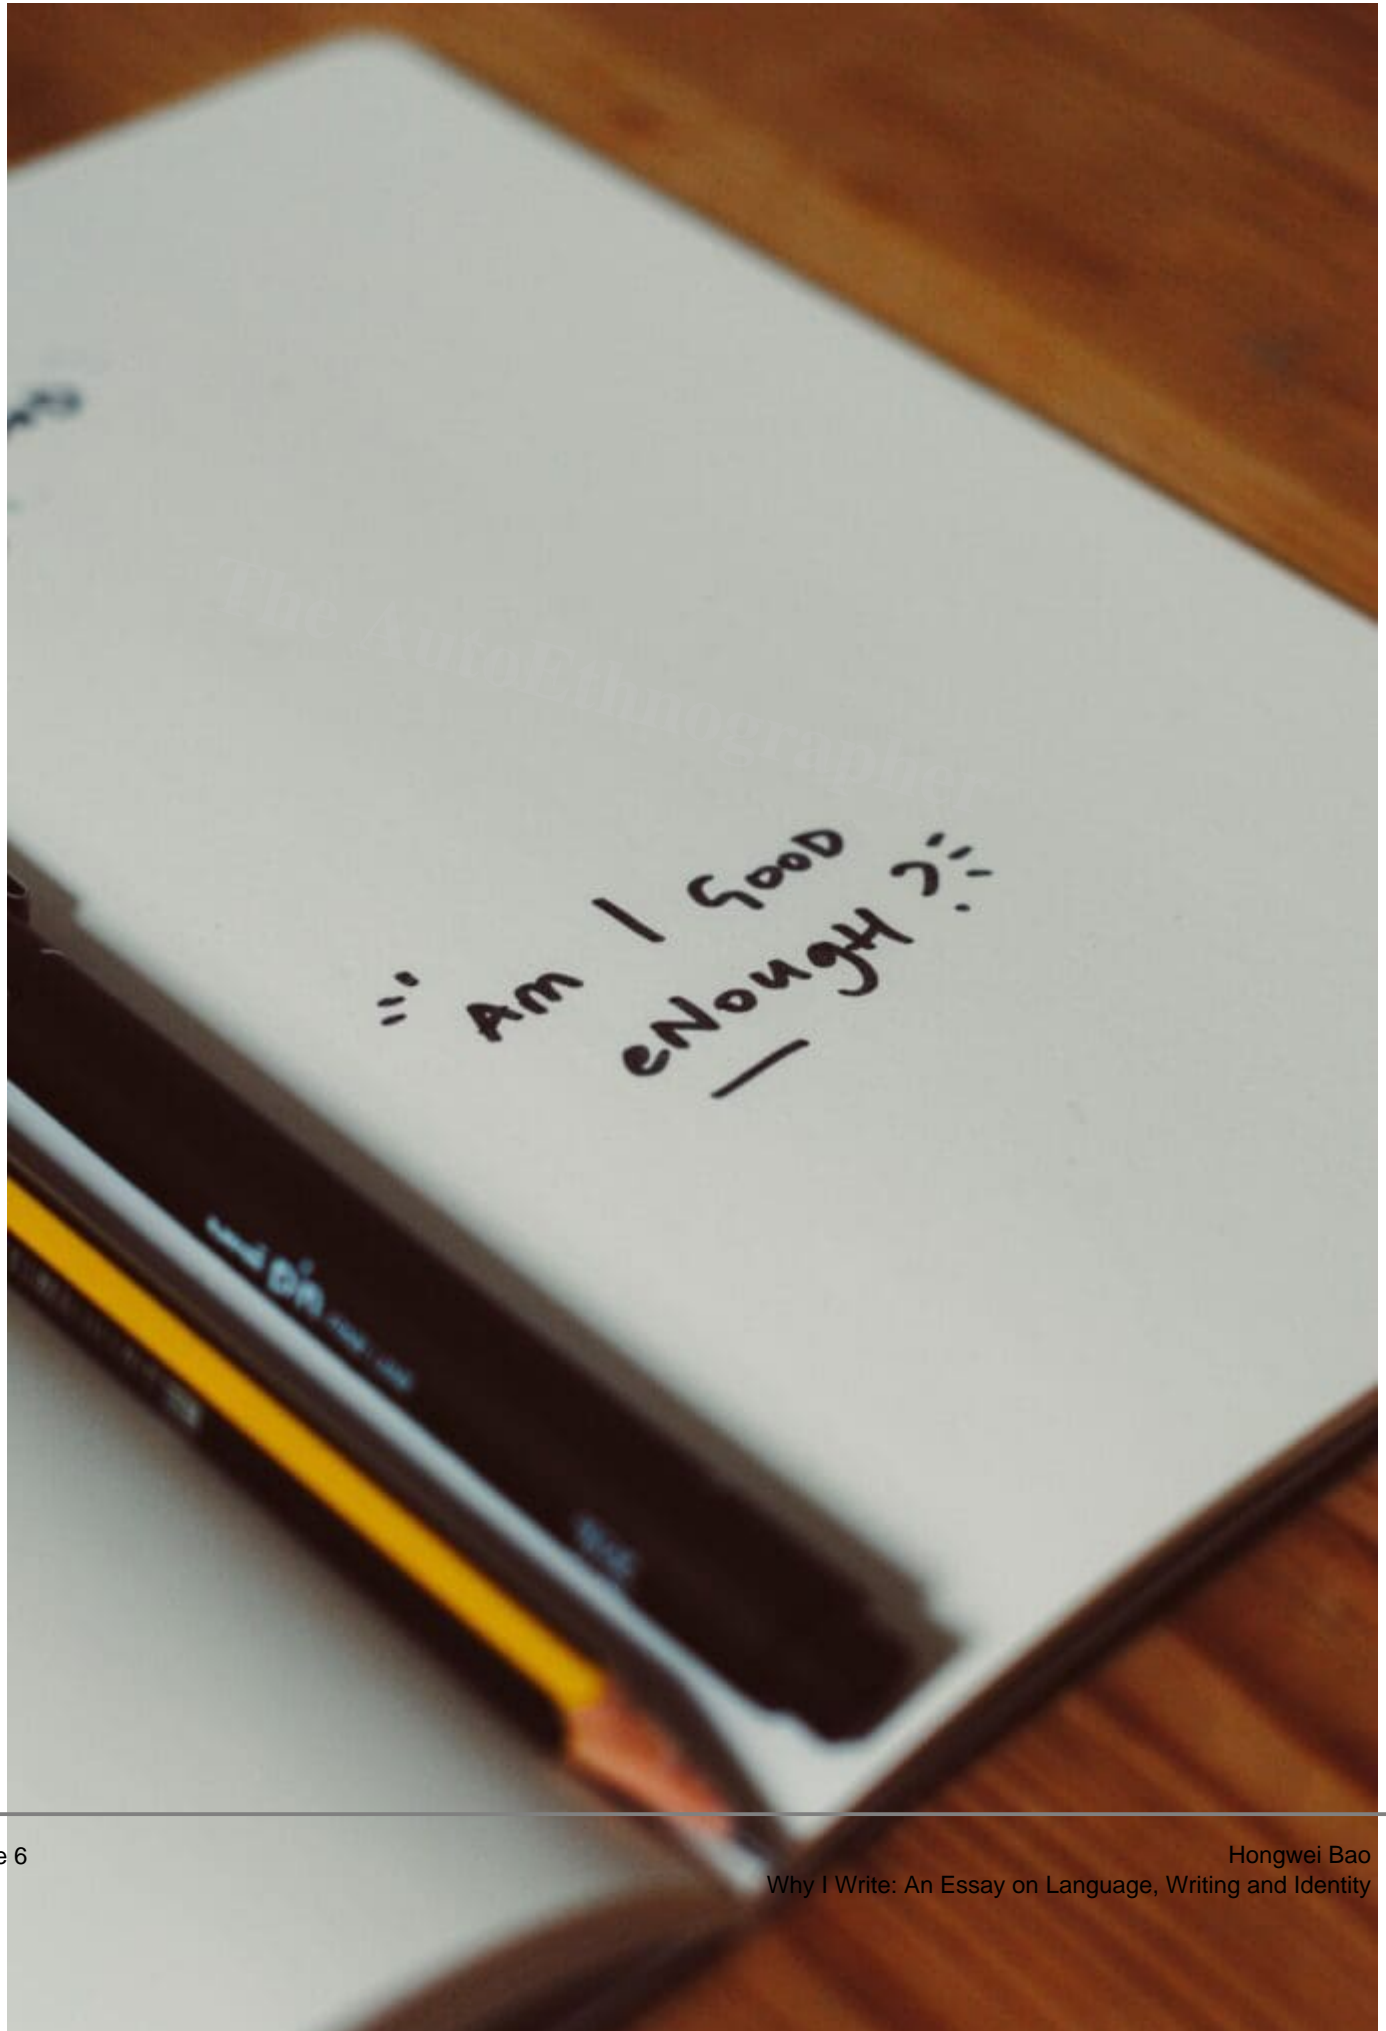 The AutoEthnographer
"Am I GooD
eNougH?"
e 6
Hongwei Bao
Why I Write: An Essay on Language, Writing and Identity